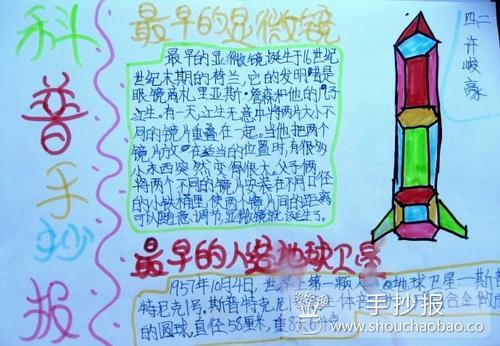 科普手抄报
最早的显微镜
四二
许峻豪
最早的显微镜诞生于16世纪
世纪末期的荷兰,它的发明者是
眼镜商札里亚斯·詹森和他的儿子
江生。有一天,江生无意中将两片大小不
同的镜片重叠在一起。当他把两个
镜片放在适当的位置时,有很多
小东西突然变得很大。父子俩
将两个不同的镜片安装在不同口径
的小铁桶里,使两个镜片间的距离
可以随意调节,显微镜就诞生了。
最早的人造地球卫星
1957年10月4日,世界上第一颗人
地球卫星一斯普
特尼克1号。斯普特克尼
体
合金做
的圆球,直径58厘米,重
手抄报
www.shouchaobao.co